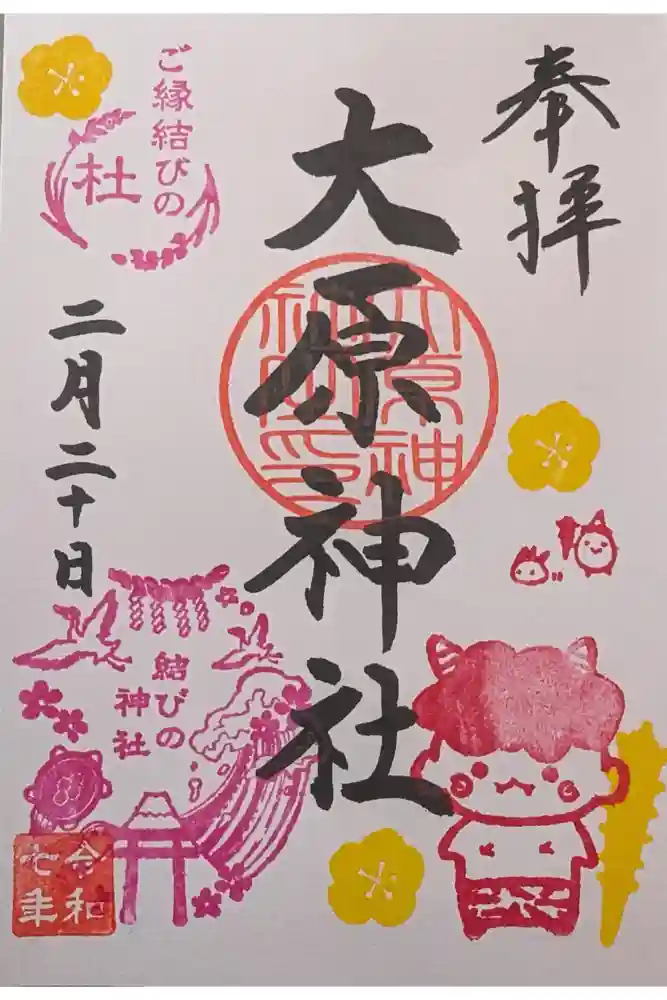 奉拝
大原神社
大原神社之印
ご縁結びの
杜
二月二十日
結びの
神社
令和
七年